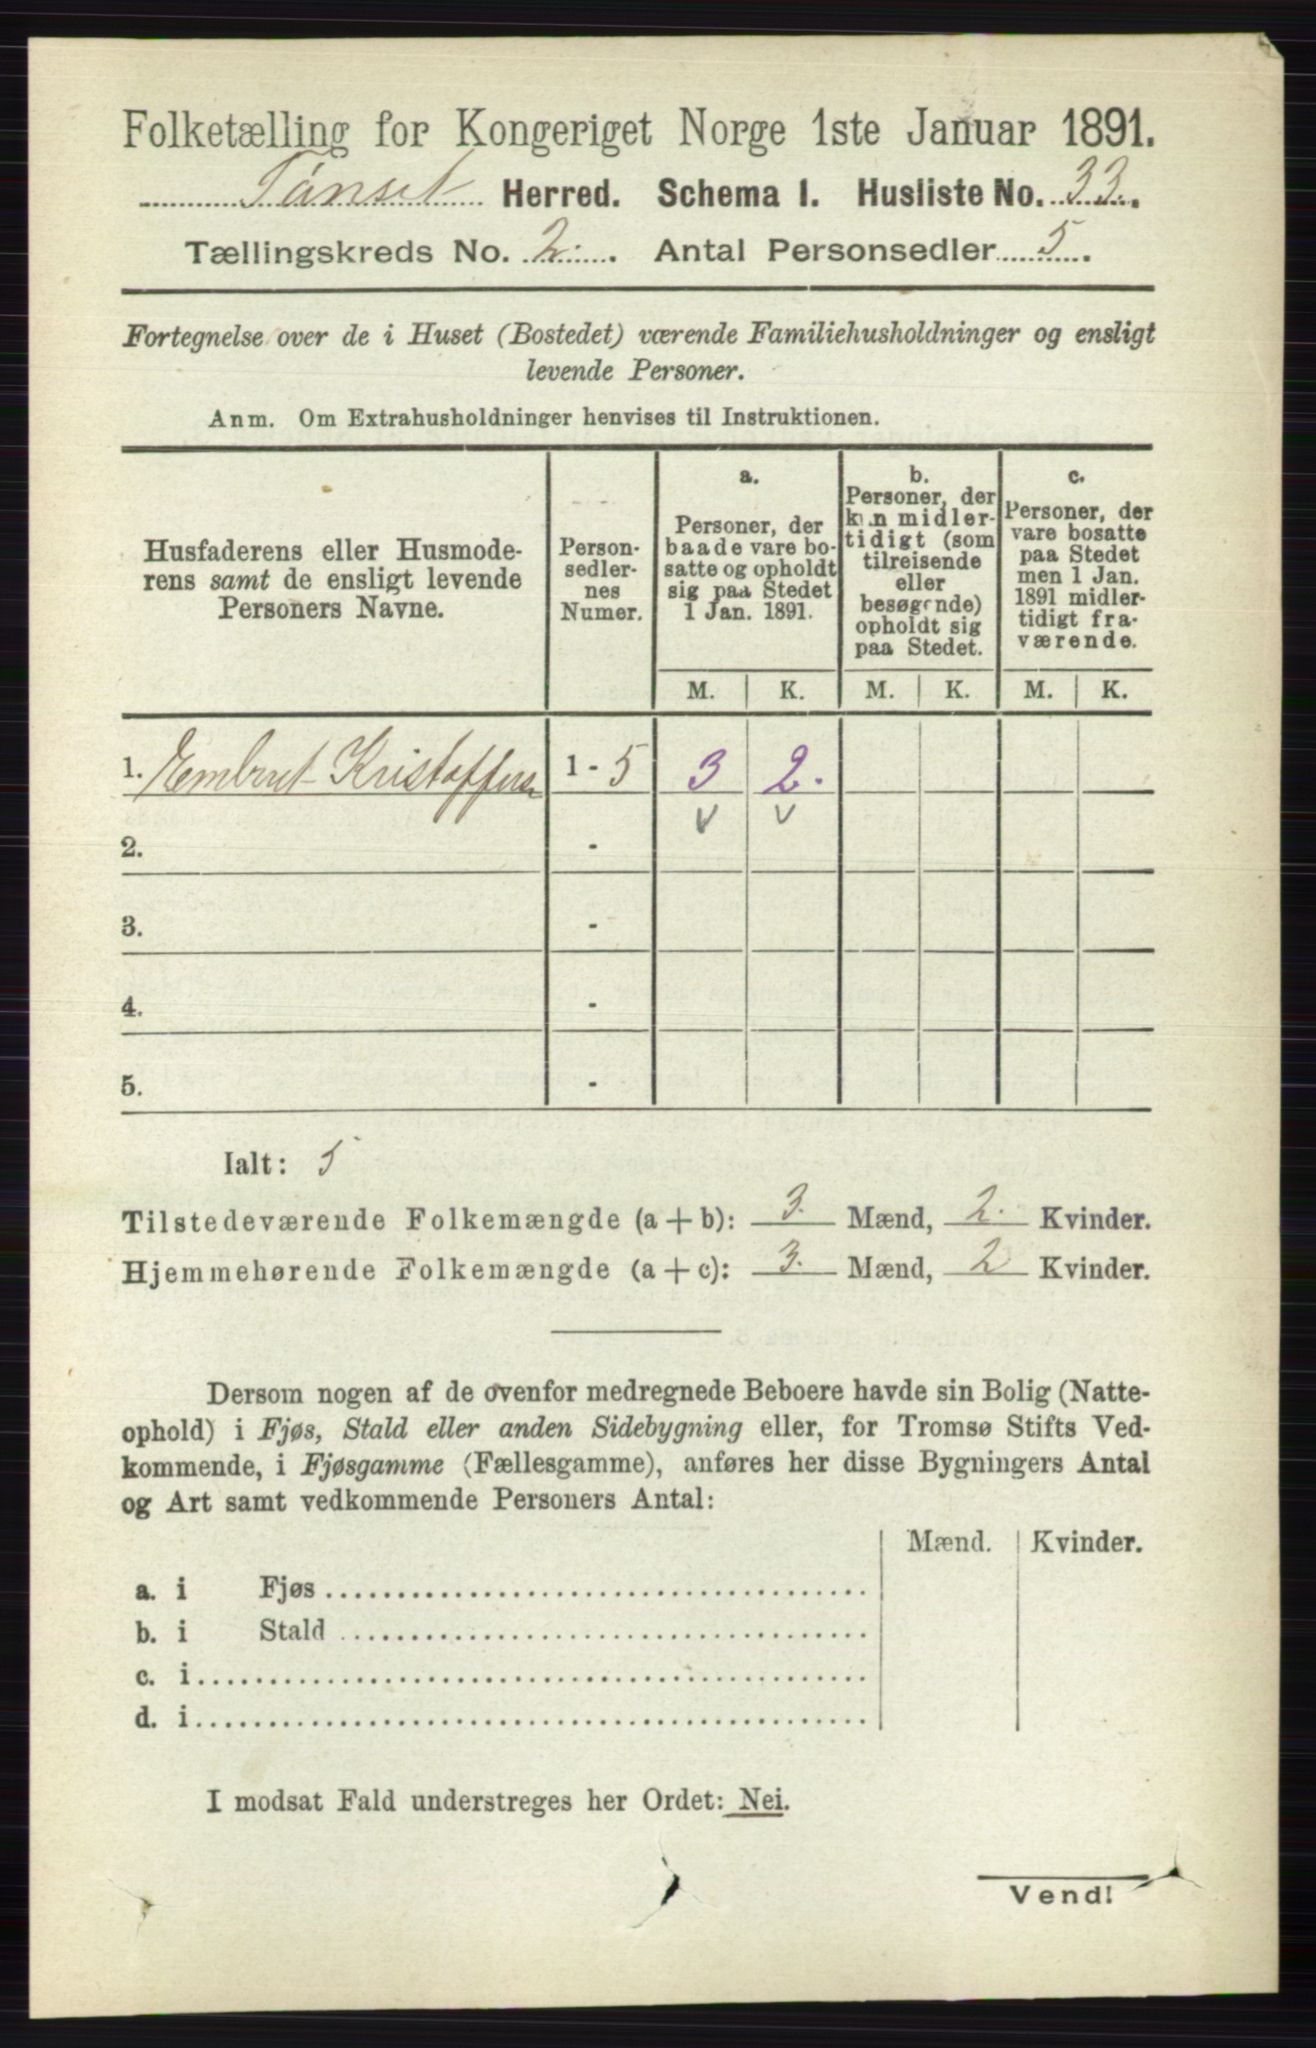 Folketælling for Kongeriget Norge 1ste Januar 1891.
Tønset Herred. Schema 1. Husliste No. 33.
Tællingskreds No. 2. Antal Personsedler 5.
Fortegnelse over de i Huset (Bostedet) værende Familiehusholdninger og ensligt
levende Personer.
Anm. Om Extrahusholdninger henvises til Instruktionen.
Husfaderens eller Husmode-
rens samt de ensligt levende
Personers Navne.
Person-
sedler-
nes
Numer.
a.
Personer, der
baade vare bo-
satte og opholdt
sig paa Stedet
1 Jan. 1891.
b.
Personer, der
kun midler-
tidigt (som
tilreisende
eller
besøgende)
opholdt sig
paa Stedet.
c.
Personer, der
vare bosatte
paa Stedet
men 1 Jan.
1891 midler-
tidigt fra-
værende.
M. K. M. K. M. K.
1. Embret Kristoffersen 1 - 5 3 2.
v v
2. -
3. -
4. -
5. -
Ialt: 5
Tilstedeværende Folkemængde (a + b): 3. Mænd, 2. Kvinder.
Hjemmehørende Folkemængde (a + c): 3. Mænd, 2 Kvinder.
Dersom nogen af de ovenfor medregnede Beboere havde sin Bolig (Natte-
ophold) i Fjøs, Stald eller anden Sidebygning eller, for Tromsø Stifts Ved-
kommende, i Fjøsgamme (Fællesgamme), anføres her disse Bygningers Antal
og Art samt vedkommende Personers Antal:
Mænd. Kvinder.
a. i Fjøs
b. i Stald
c. i
d. i
I modsat Fald understreges her Ordet: Nei.
Vend!